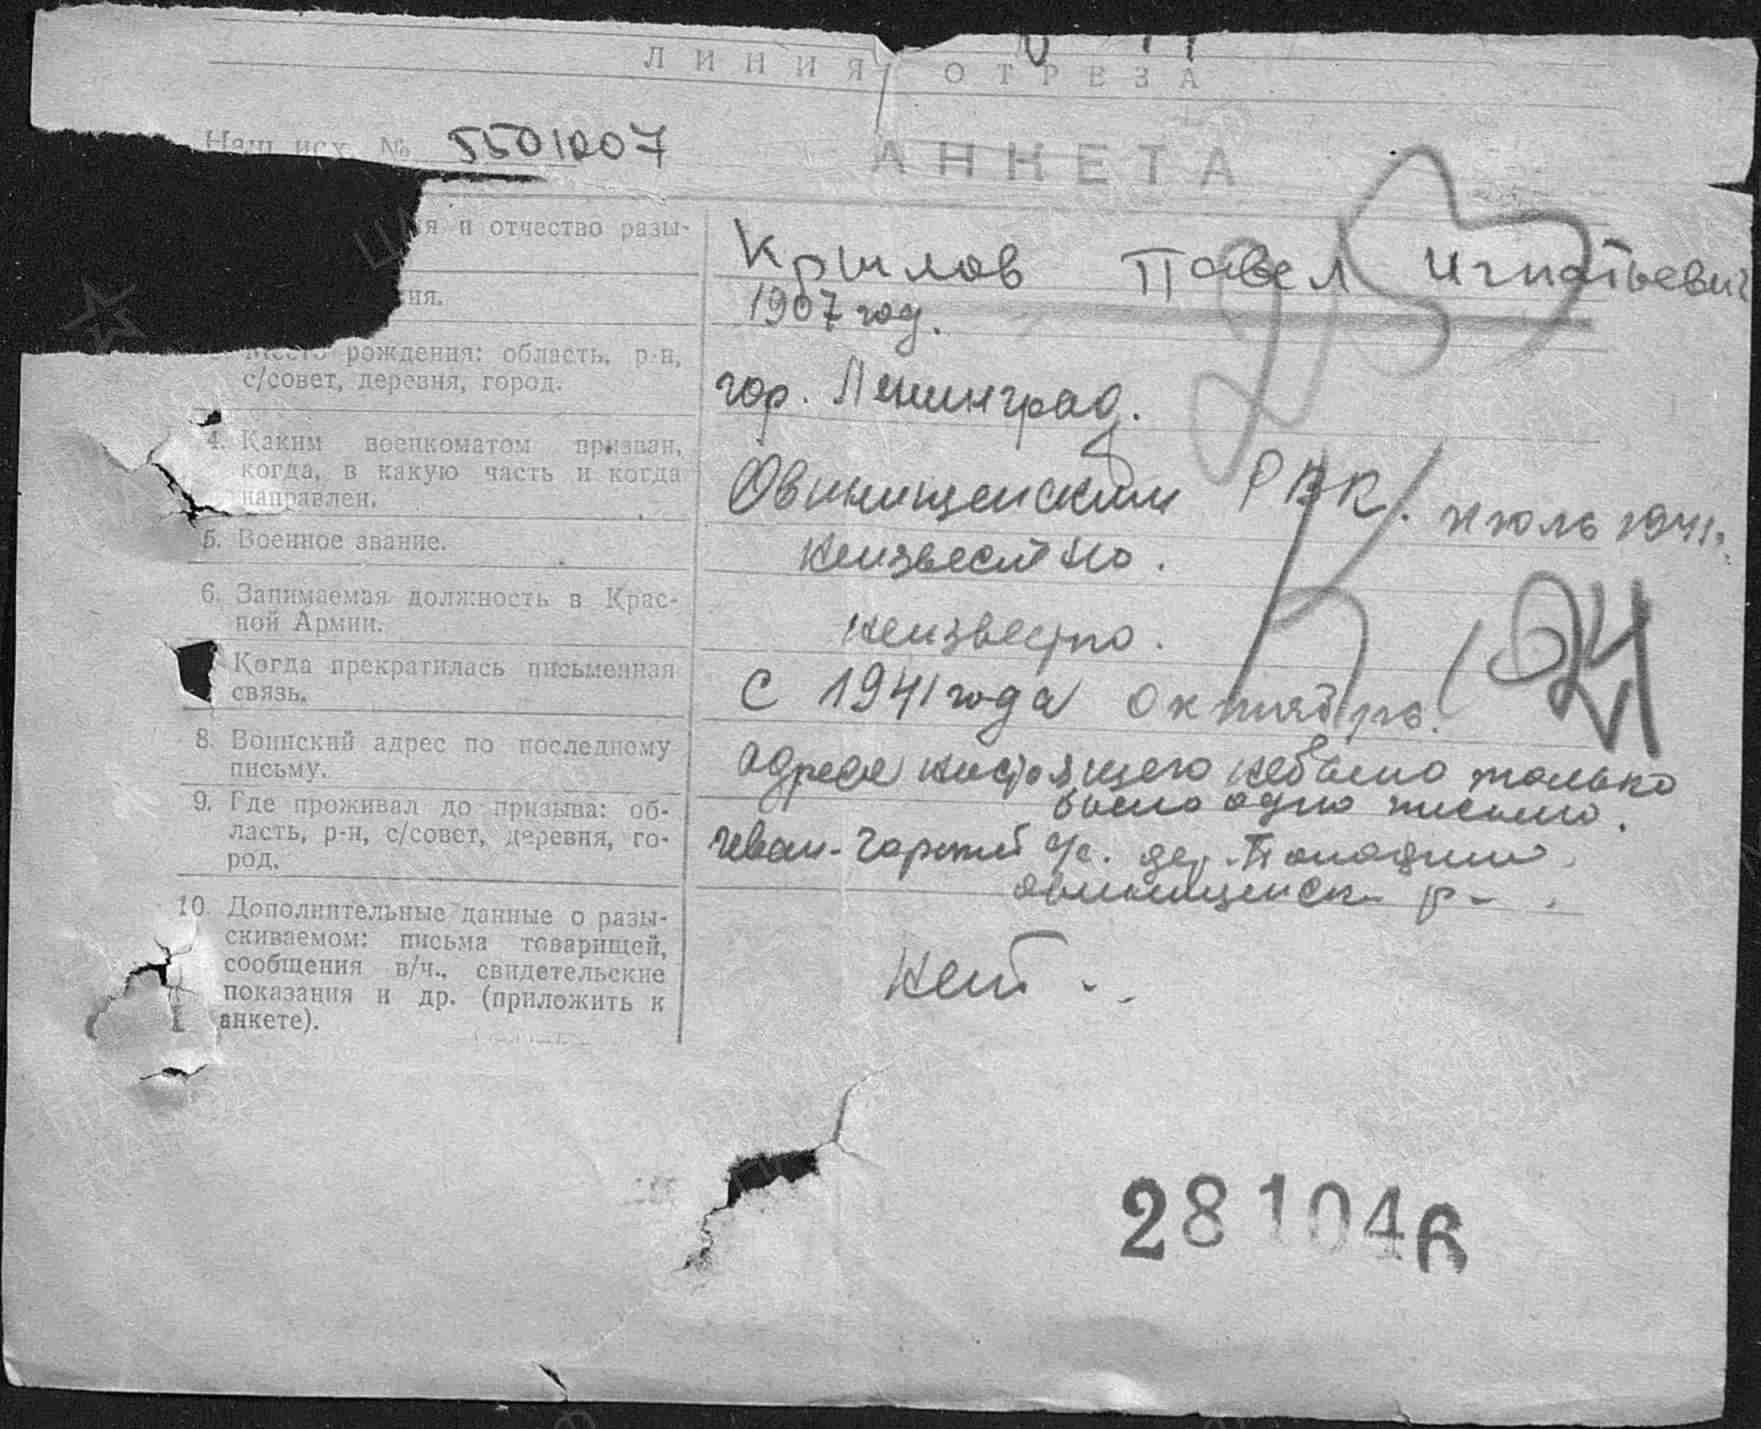 ЛИНИЯ ОТРЕЗА
Наш исх. № 5501007
АНКЕТА
я и отчество разы-
Крылов Павел Игнатьевич
ия.
1907 год.
Место рождения: область, р-н,
с/совет, деревня, город.
гор. Ленинград.
4. Каким военкоматом призван,
когда, в какую часть и когда
направлен.
Овинищенским РВК. июль 1941г.
5. Военное звание.
неизвестно.
6. Занимаемая должность в Крас-
ной Армии.
неизвестно.
Когда прекратилась письменная
связь.
с 1941 года октябрь.
24
8. Воинский адрес по последнему
письму.
адреса настоящего небыло только
было одно письмо.
9. Где проживал до призыва: об-
ласть, р-н, с/совет, деревня, го-
род.
Иван-Горский с/с. дер.
овинищенск р-
10. Дополнительные данные о разы-
скиваемом: письма товарищей,
сообщения в/ч., свидетельские
показания и др. (приложить к
анкете).
Нет.
281046